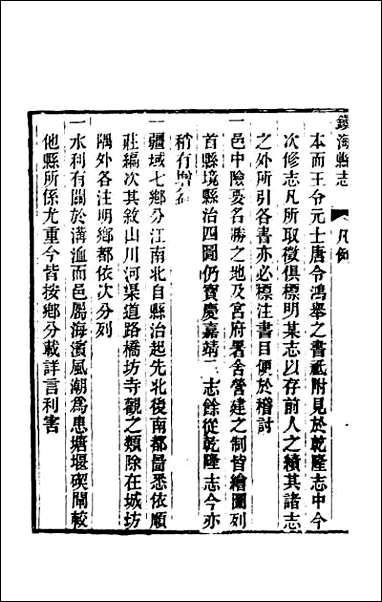 鎮海縣志 凡例
本而王令元士唐令鴻舉之書祗附見於乾隆志中今
次修志凡所取徵俱標明某志以存前人之績其諸志
之外所引各書亦必標注書目便於稽討
一邑中險要名勝之地及宮府署舍營建之制皆繪圖列
首縣境縣治四圖仍寶慶嘉靖二志餘從乾隆志今亦
稍有增
一疆域七鄉分江南北自縣治起先北後南都啚悉依順
莊編次其敘山川河渠道路橋坊寺觀之類除在城坊
隅外各注明鄉都依次分列
一水利有關於溝洫而邑臨海濱風潮爲患塘堰碶閘較
他縣所係尤重今皆按鄉分載詳言利害